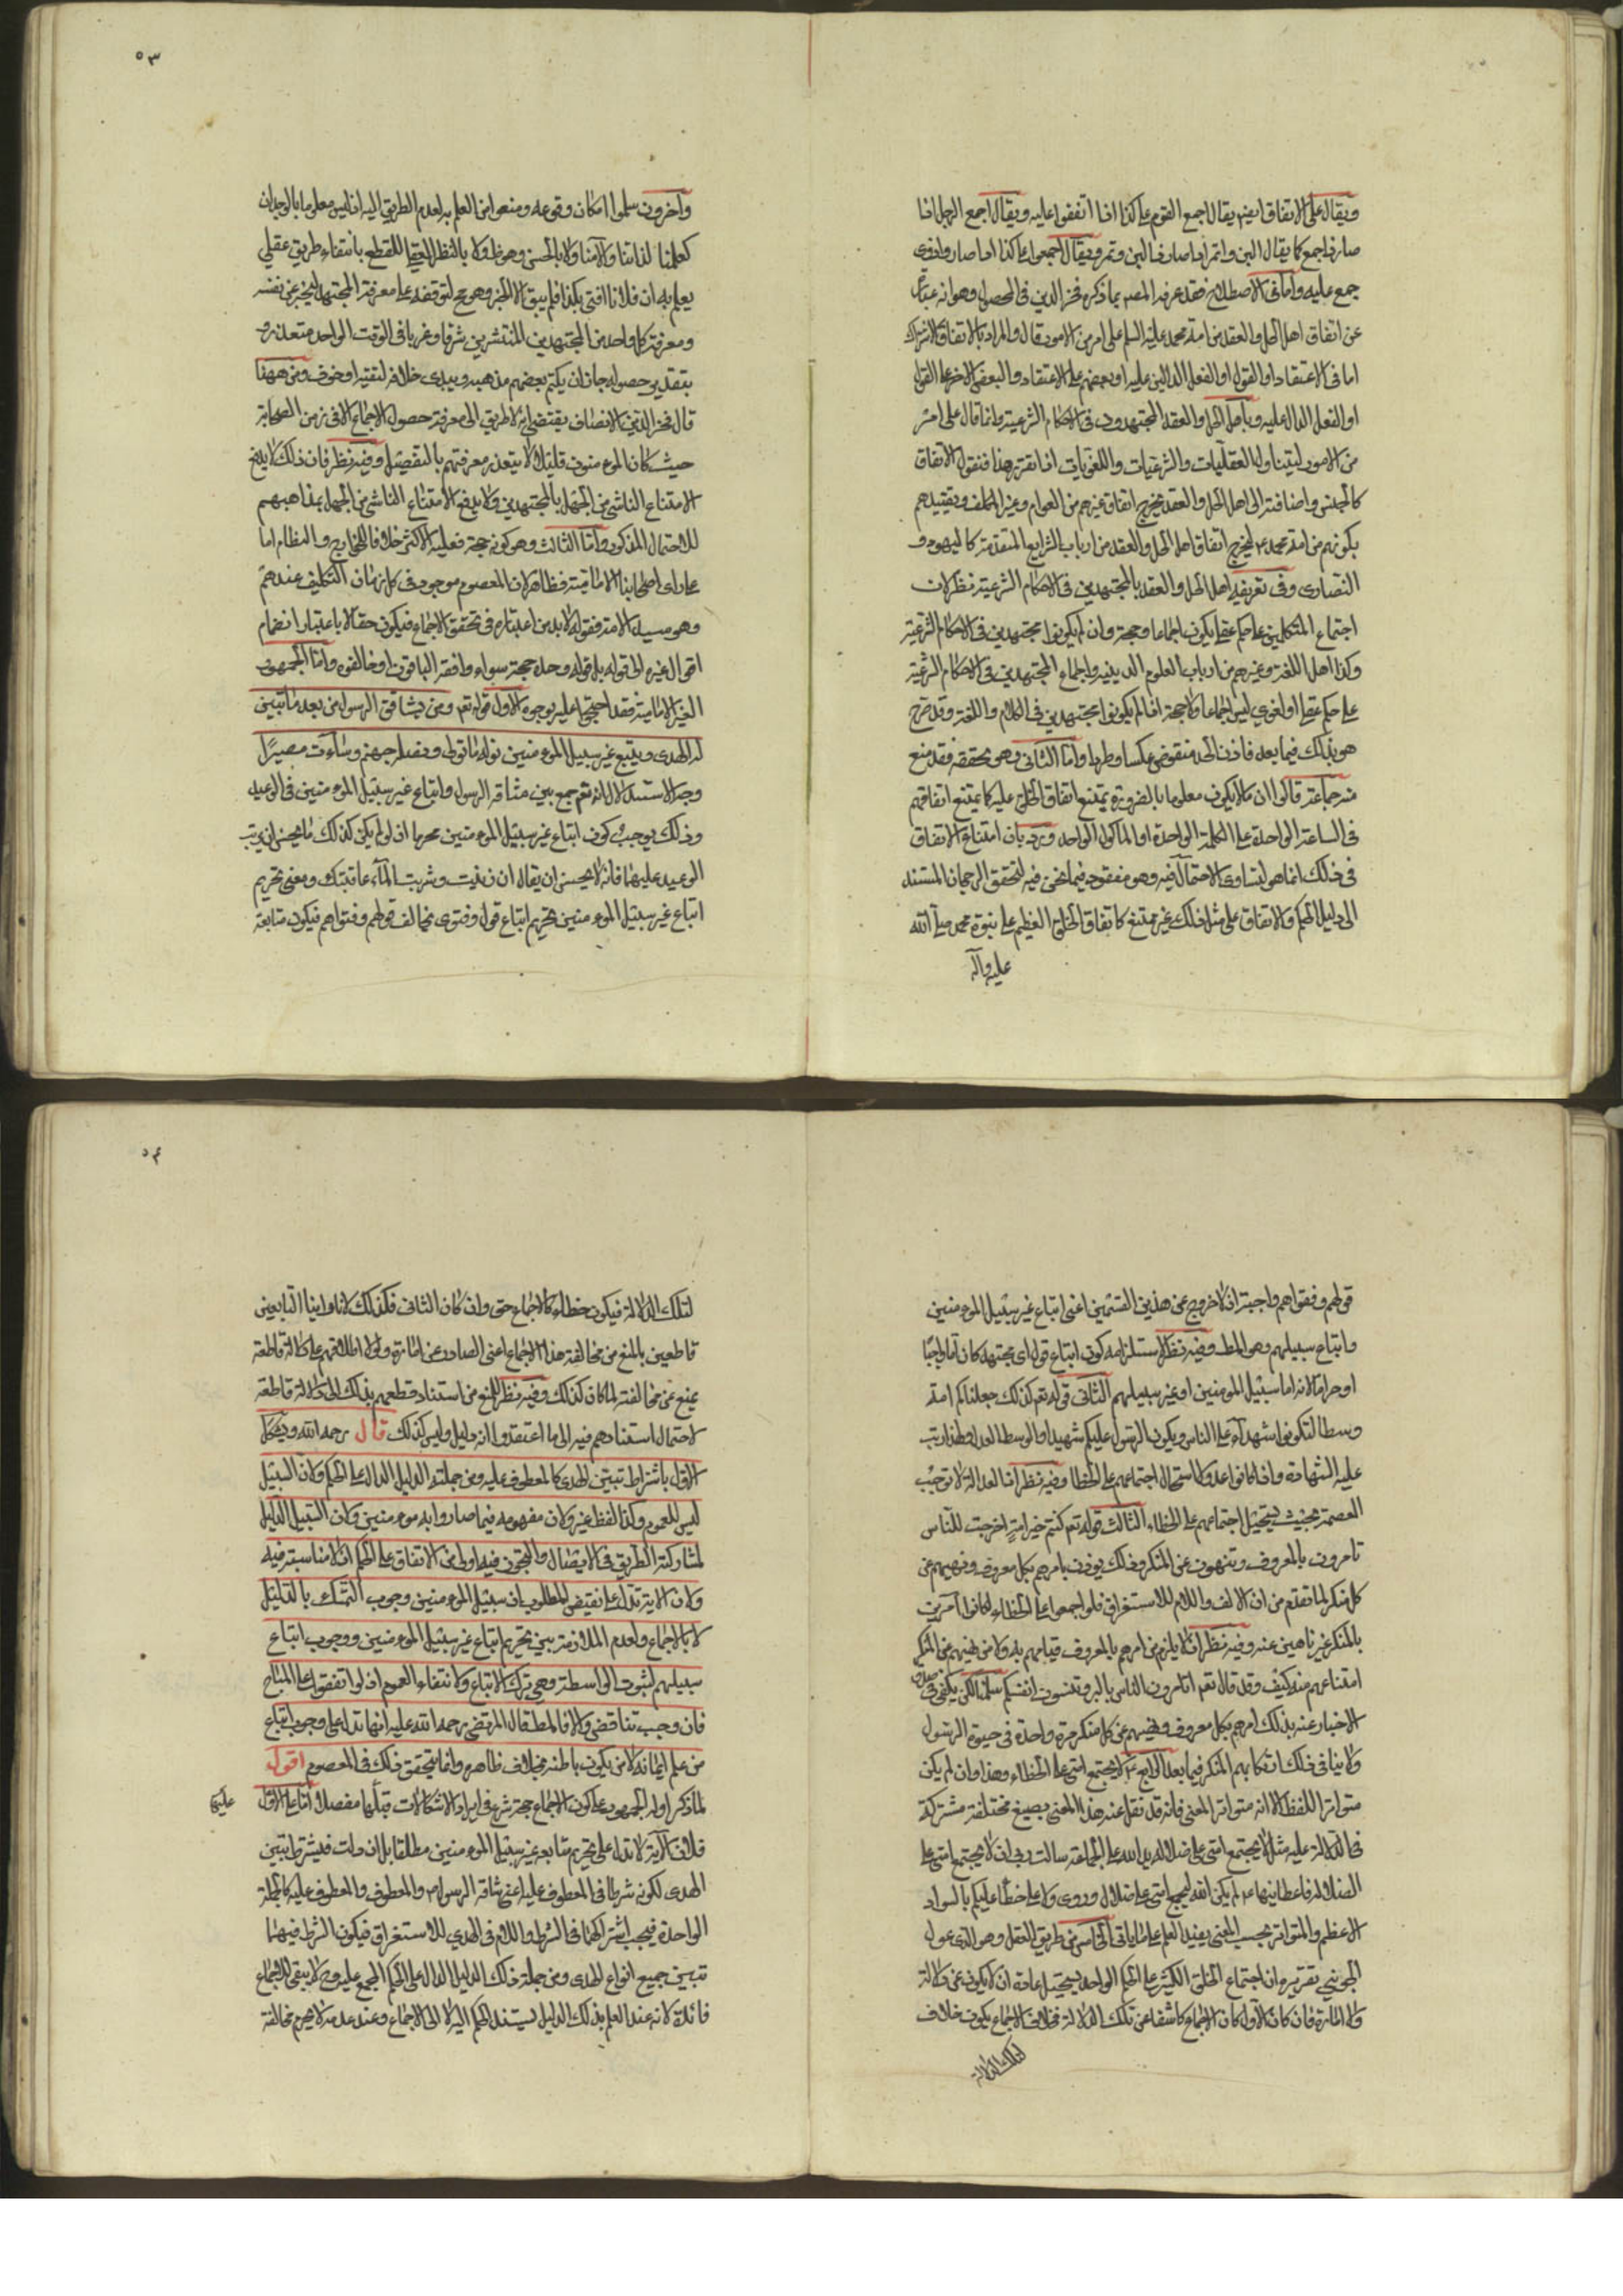 ويقال على الاتفاق ايضا يقال اجمع القوم على كذا اذا اتفقوا عليه ويقال اجمع الرجل اذا
صار ذا جمع كما يقال البن واتمر اذا صار ذا لبن وتمر ويقال اجمعوا على كذا اذا صاروا ذوي
جمع عليه واما في الاصطلاح فقد عرفه المصـ بما ذكره فخر الدين في المحصول وهو انه عبارة
عن اتفاق اهل الحل والعقد من امة محمد عليه السلم على امر من الامور قال والمراد بالاتفاق الاشتراك
اما في الاعتقاد او القول او الفعل الدالين عليه او بعضهم على الاعتقاد والبعض الاخر على القول
او الفعل الدال عليه وباهل الحل والعقد المجتهدون في الاحكام الشرعية وانما قال على امر
من الامور ليتناول العقليات والشرعيات واللغويات اذا تقرر هذا فنقول الاتفاق
كالجنس واضافته الى اهل الحل والعقد يخرج اتفاق غيرهم من العوام وغير المكلف وتقييدهم
بكونهم من امة محمد ع ليخرج اتفاق اهل الحل والعقد من ارباب الشرايع المتقدمة كاليهود و
النصارى وفي تعريفه اهل الحل والعقد بالمجتهدين في الاحكام الشرعية نظر لان
اجتماع المتكلمين على حكم عقلي يكون اجماعا وحجة وان لم يكونوا مجتهدين في الاحكام الشرعية
وكذا اهل اللغة وغيرهم من ارباب العلوم الدينية واجماع المجتهدين في الاحكام الشرعية
على حكم عقلي او لغوي ليس اجماعا ولا حجة اذا لم يكونوا مجتهدين في الكلام واللغة وقد صرح
هو بذلك فيما بعد فاذن الحد منقوض عكسا وطردا واما الثاني وهو تحققه فقد منع
منه جماعة قالوا ان ما لا يكون معلوما بالضرورة يمتنع اتفاق الخلق عليه كما يمتنع اتفاقهم
في الساعة الواحدة على الكلمة الواحدة او الماكول الواحد ورد بان امتناع الاتفاق
في ذلك انما هو لتساوي الاحتمال فيه وهو مفقود فيما نحن فيه لتحقق الرجحان المستند
الى دليل الحكم والاتفاق على مثل ذلك غير ممتنع كاتفاق الخلق العظيم على نبوة محمد صلى الله
عليه وآله
٥٣
وآخرون سلموا امكان وقوعه ومنعوا من العلم به لعدم الطريق اليه اذ ليس معلوما بالوجدان
كعلمنا لذاتنا والامنا ولا بالحس وهو ظ ولا بالنظر العقلي للقطع بانتفاء طريق عقلي
يعلم به ان فلانا افتى بكذا فلم يبق الا الخبر وهو مح لتوقفه على معرفة المجتهد المخبر عن نفسه
ومعرفة كل واحد من المجتهدين المنتشرين شرقا وغربا في الوقت الواحد متعذر و
بتقدير حصوله جاز ان يكتم بعضهم مذهبه ويبدى خلافه لتقية او خوف ومن ههنا
قال فخر الدين الانصاف يقتضي انه لا طريق الى معرفة حصول الاجماع الا في زمن الصحابة
حيث كان المومنون قليلا لا يتعذر معرفتهم بالتفصيل وفيه نظر فان ذلك لا يدفع
الامتناع الناشي من الجهل بالمجتهدين ولا يدفع الامتناع الناشي من الجهل بمذاهبهم
للاحتمال المذكور واما الثالث وهو كونه حجة فعليه الاكثر خلافا للخوارج والنظام اما
على راى اصحابنا الامامية فظاهر لان المعصوم موجود في كل زمان التكليف عندهم
وهو سيد الامة فقوله لا بد من اعتباره في تحقق الاجماع فيكون حقا لا باعتبار انضمام
اقوال غيره الى قوله بل قوله وحده حجة سواء وافقه الباقون او خالفوه واما الجمهور
الغير الامامية فقد احتجوا عليه بوجوه الاول قوله تعـ ومن يشاقق الرسول من بعد ما تبين
له الهدى ويتبع غير سبيل المومنين نوله ما تولى ونصله جهنم وساءت مصيرا
وجه الاستدلال انه تعـ جمع بين مشاقة الرسول واتباع غير سبيل المومنين في الوعيد
وذلك يوجب كون اتباع غير سبيل المومنين محرما اذ لو لم يكن كذلك ما يحسن ان يرتب
الوعيد عليهما فانه لا يحسن ان يقال ان زنيت وشربت الماء عاقبتك ومعنى تحريم
اتباع غير سبيل المومنين تحريم اتباع قول وفتوى مخالف قولهم وفتواهم فيكون متابعة
قولهم وفتواهم واجبة اذ لا خروج عن هذين القسمين اعني اتباع غير سبيل المومنين
واتباع سبيلهم وهو المطـ وفيه نظر لاستلزامه كون اتباع قول اي مجتهد كان اما واجبا
او حراما لانه اما سبيل المومنين او غير سبيلهم الثاني قوله تعـ كذلك جعلناكم امة
وسطا لتكونوا شهداء على الناس ويكون الرسول عليكم شهيدا والوسط العدل ولهذا رتب
عليه الشهادة واذا كانوا عدولا استحال اجتماعهم على الخطا وفيه نظر اذ العدالة لا توجب
العصمة بحيث يستحيل اجتماعهم على الخطاء الثالث قوله تعـ كنتم خير امة اخرجت للناس
تامرون بالمعروف وتنهون عن المنكر وذلك يوذن بامرهم بكل معروف ونهيهم عن
كل منكر لما تقدم من ان الالف واللام للاستغراق فلو اجمعوا على الخطاء لكانوا آمرين
بالمنكر غير ناهين عنه وفيه نظر اذ لا يلزم من امرهم بالمعروف قيامهم به ولا من نهيهم عن المنكر
امتناعهم منه كيف وقد قال تعـ اتامرون الناس بالبر وتنسون انفسكم سلمنا لكن يكفي في صدق
الاخبار عنه بذلك امرهم بكل معروف ونهيهم عن كل منكر مرة واحدة في حيوة الرسول
ولا ينافي ذلك ارتكابهم المنكر فيما بعد الرابع قوله ع لا يجتمع امتي على الخطاء وهذا وان لم يكن
متواتر اللفظ الا انه متواتر المعنى فانه قد نقل عنه هذا المعنى بصيغ مختلفة مشتركة
في الدلالة عليه مثل لا يجتمع امتي على ضلالة يد الله على الجماعة سالت ربي ان لا يجتمع امتي على
الضلالة فاعطانيها ع لم يكن الله ليجمع امتي على ضلال وروي ولا على خطأ عليكم بالسواد
الاعظم والمتواتر بحسب المعنى يفيد العلم على ما ياتي الخامس من طريق العقل وهو الذي عول
الجويني تقريره ان اجتماع الخلق الكثير على الحكم الواحد يستحيل عادة ان لا يكون عن دلالة
ولا امارة فان كان الاول كان الاجماع كاشفا عن تلك الدلالة فخلاف الاجماع يكون خلاف
لتلك الدلالة
٥٤
لتلك الدلالة فيكون خطاء كالاجماع حق وان كان الثاني فكذلك لانا راينا التابعين
قاطعين بالمنع من مخالفة هذا الاجماع اعني الصادر عن امارة ولولا اطلاقهم على دلالة قاطعة
يمنع عن مخالفته لما كان كذلك وفيه نظر للمنع من استناد قطعهم بذلك الى دلالة قاطعة
لاحتمال استنادهم فيه الى ما اعتقدوا انه دليل وليس كذلك قال رحمه الله ويشكل
الاول باشتراط تبين الهدى كالمعطوف عليه ومن جملته الدليل الدال على الحكم ولان السبيل
ليس للعموم وكذا لفظ غير ولان مفهومه فيما صاروا به مومنين ولان السبيل الدليل
لمشاركته الطريق في الايصال والتجوز فيه اولى من الاتفاق على الحكم اذ لا مناسبة فيه
ولان الاية تدل على نقيض المطلوب اذ سبيل المومنين وجوب التمسك بالدليل
لا بالاجماع ولعدم الملازمة بين تحريم اتباع غير سبيل المومنين ووجوب اتباع
سبيلهم لثبوت الواسطة وهي ترك الاتباع ولانتفاء العموم اذ لو اتفقوا على المباح
فان وجب تناقض والا فالمطـ قال المرتضى رحمة الله عليه انها تدل على وجوب اتباع
من علم ايمانه لا من يكون باطنه بخلاف ظاهره وانما يتحقق ذلك في المعصوم اقول
لما ذكر ادلة الجمهور على كون الاجماع حجة شرع في ايراد الاشكالات عليها مفصلا اما على الاول
فلان الاية لا تدل على تحريم متابعة غير سبيل المومنين مطلقا بل ان دلت فبشرط تبين
الهدى لكونه شرطا في المعطوف عليه اعني مشاقة الرسول والمعطوف والمعطوف عليه كالجملة
الواحدة فيجب اشتراكهما في الشرط واللام في الهدى للاستغراق فيكون الشرط فيهما
تبين جميع انواع الهدى ومن جملة ذلك الدليل الدال على الحكم المجمع عليه وح لا يبقى للاجماع
فائدة لانه عند العلم بذلك الدليل يستند الحكم اليه لا الى الاجماع وعند عدمه لا يحرم مخالفته